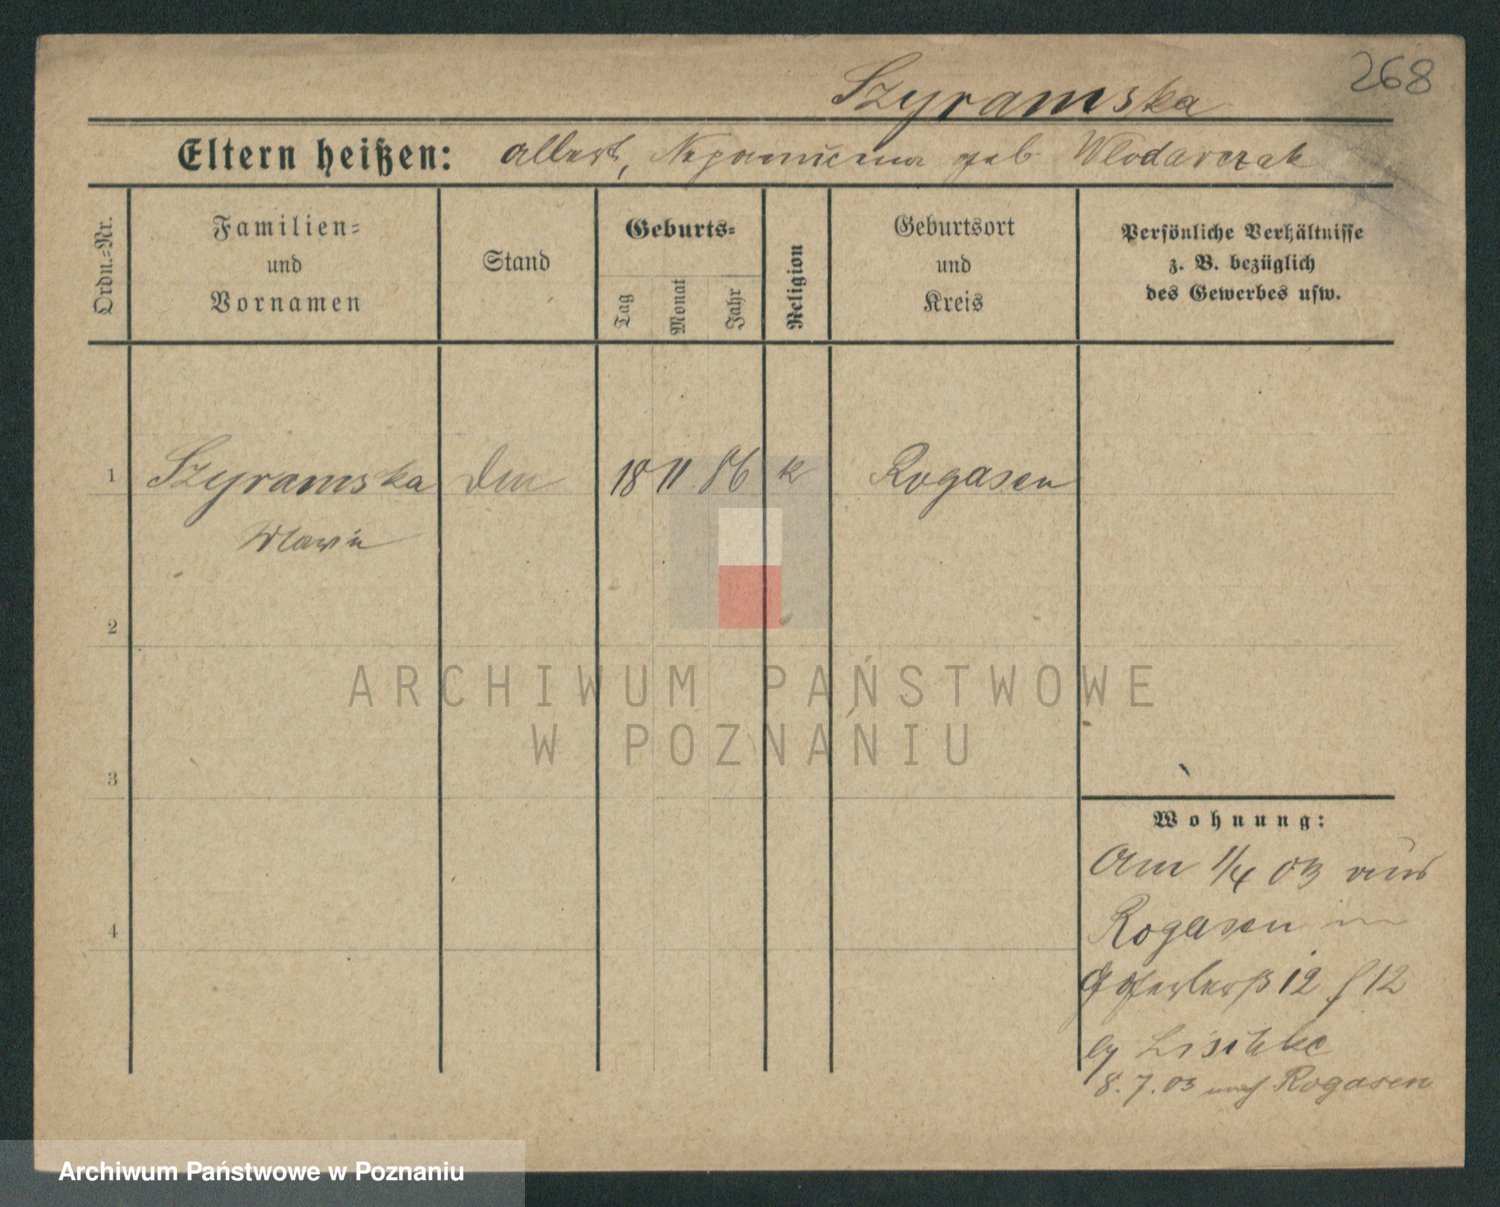 268
Szyramska
Eltern heißen: Albert, Nepomucena geb. Wlodarczak
Ordn.=Nr.
Familien=
und
Vornamen
Stand
Geburts=
Tag
Monat
Jahr
Religion
Geburtsort
und
Kreis
Persönliche Verhältnisse
z. B. bezüglich
des Gewerbes usw.
1 Szyramska 18 11 86 k Rogasen
Marie
2
ARCHIWUM PAŃSTWOWE
W POZNANIU
3
Wohnung:
Am 1/4 03 aus
4
Rogasen in
12 12
8.7.03 nach Rogasen
Archiwum Państwowe w Poznaniu